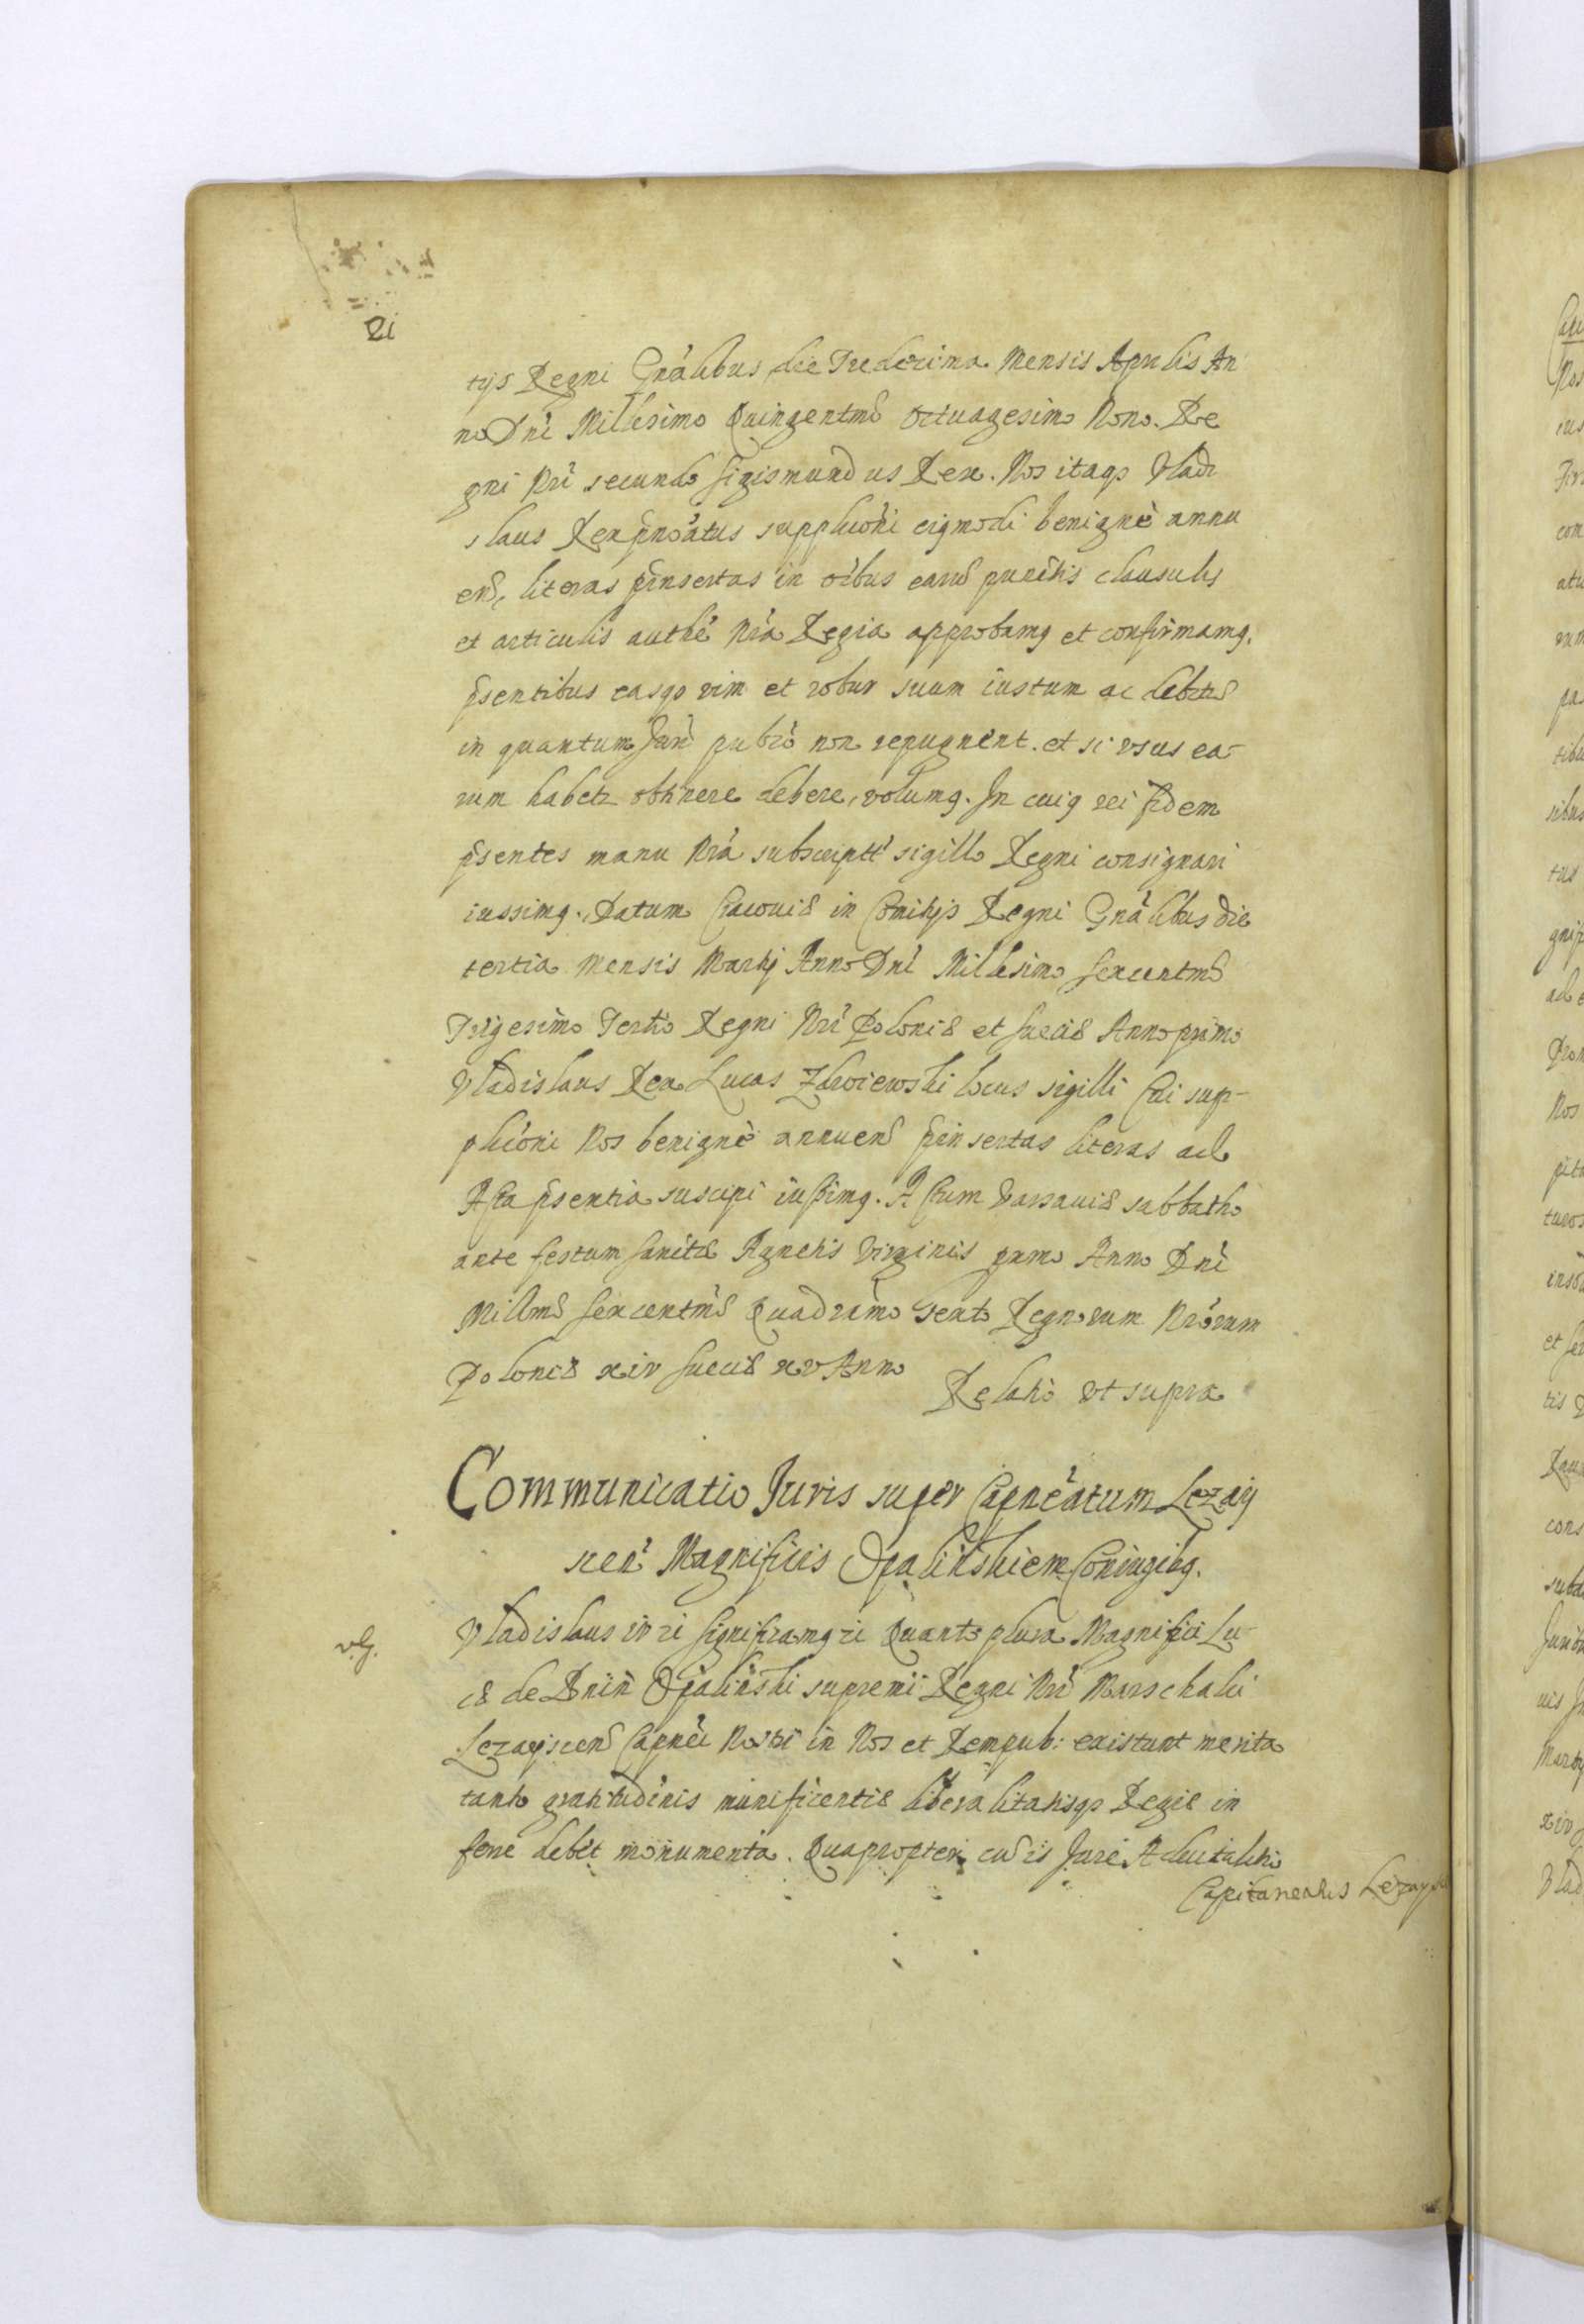 21
tijs Regni Gnalibus die Tredecima Mensis Aprilis An
no Dni Millesimo Quingentmo Octuagesimo Nono. Re
gni Nri secundo Sigismundus Rex. Nos itaqs Vladi
slaus Rex pnoatus suppliconi eigmodi benigne annu
en, literas pinsertas in oibus earu punctis clausulis
et articulis authe Nra Regia approbamg et confirmamg.
psentibus easqs vim et robur suum iustum ac debitu
in quantum Juri publo non repugnent. et si usus ea-
rum habetr obtinere debere, volumg. In cuig rei fidem
psentes manu Nra subscriptt sigillo Regni consignari
iussimg. Datum Cracouiæ in Comitijs Regni Gnalibus die
tertia Mensis Martij Anno Dni Millesimo Sexcentmo
Trigesimo Tertio Regni Nri Poloniæ et Sueciæ Anno primo
Vladislaus Rex Lucas locus sigilli Cui sup-
plicioni Nos benigne annuen pinsertas literas ad
Acta psentia suscipi iussimg. Actum Varsauiæ sabbatho
ante festum Sanctæ Agnetis Virginis primo Anno Dni
Millmo Sexcentmo Quadramo Sexto Regnorum Nrorum
Poloniæ xiv Sueciæ xv Anno
Relatio ut supra
Communicatio Juris super Capneatum Lezaij
scen Magnificis Opalinskiem Coniugibg.
vlg.
Vladislaus iv zi Significamg zi Quanto plura Magnifici Lu-
cæ de Bnin Opalinski supremi Regni Nri Marschalci
Lezayscen Capnei Nostri in Nos et Rempub: existunt merita
tanto gratitudinis munificentiæ liberalitatisqs Regiæ in
ferre debet monumenta. Quapropter cu is Jure Aduitalitio
Capitaneatus